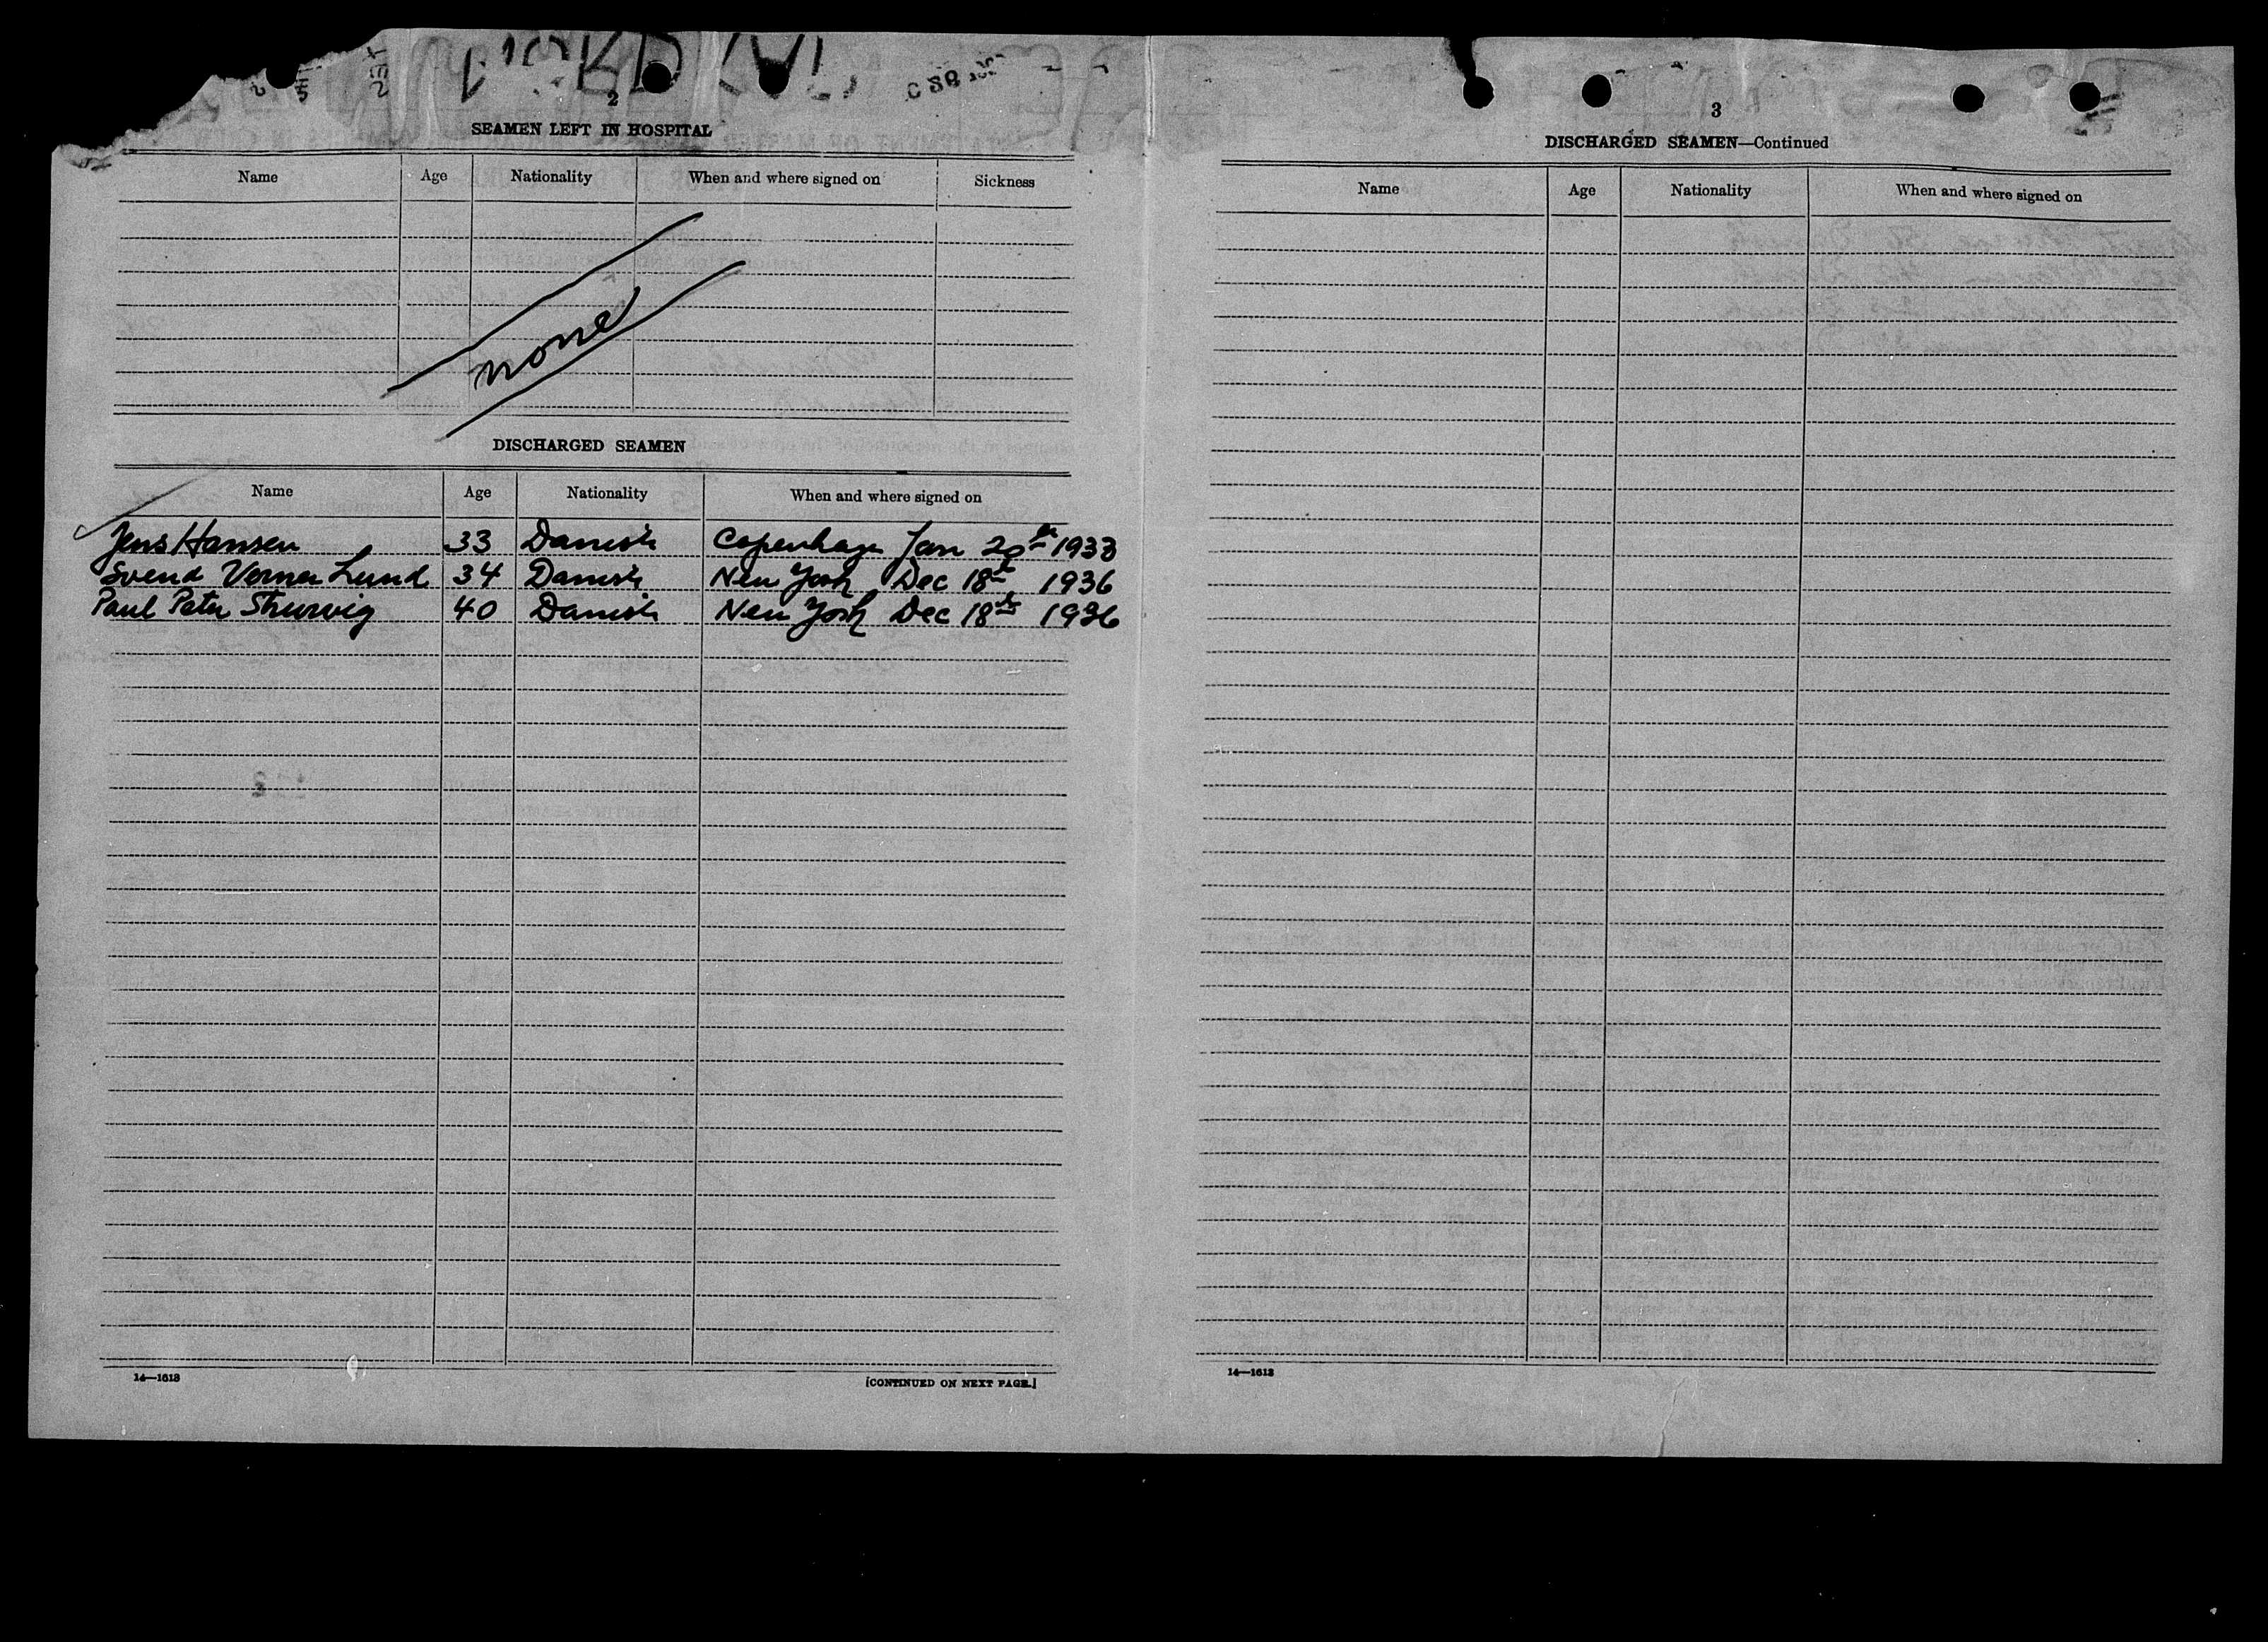 2
SEAMEN LEFT IN HOSPITAL
Name Age Nationality When and where signed on Sickness
none
DISCHARGED SEAMEN
Name Age Nationality When and where signed on
Jens Hansen 33 Danish Copenhagen Jan 20th 1933
Svend Verner Lund 34 Danish New York Dec 18th 1936
Paul Peter 40 Danish New York Dec 18th 1936
14—1613
[CONTINUED ON NEXT PAGE.]
3
DISCHARGED SEAMEN—Continued
Name Age Nationality When and where signed on
14—1613